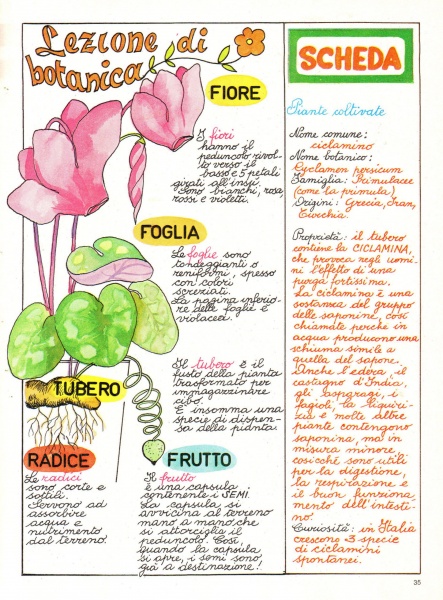 Lezione di
botanica
FIORE
I fiori
hanno il
peduncolo rivol
to verso il
basso e 5 petali
girati all'insù.
Sono bianchi, rosa,
rossi e violetti.
FOGLIA
Le foglie sono
tondeggianti o
reniformi, spesso
con colori
screziati.
La pagina inferio
re delle foglie è
violacea.
TUBERO
Il tubero è il
fusto della pianta
trasformato per
immagazzinare
cibo.
È insomma una
specie di dispen-
sa della pianta.
RADICE
Le radici
sono corte e
sottili.
Servono ad
assorbire
acqua e
nutrimento
dal terreno.
FRUTTO
Il frutto
è una capsula
contenente i SEMI.
La capsula si
avvicina al terreno
mano a mano che
si attorciglia il
peduncolo. Così,
quando la capsula
si apre, i semi sono
già a destinazione!
SCHEDA
Piante coltivate
Nome comune:
ciclamino
Nome botanico:
Cyclamen persicum
Famiglia: Primulacee
(come la primula)
Origini: Grecia, Iran,
Turchia.
Proprietà: il tubero
contiene la CICLAMINA,
che provoca negli uomi
ni l'effetto di una
purga fortissima.
La ciclamina è una
sostanza del gruppo
delle saponine, così
chiamate perché in
acqua producono una
schiuma simile a
quella del sapone.
Anche l'edera, il
castagno d'India,
gli asparagi, i
fagioli, la liquiri
zia e molte altre
piante contengono
saponina, ma in
misura minore,
cosicché sono utili
per la digestione,
la respirazione e
il buon funziona
mento dell'intesti
no!
Curiosità: in Italia
crescono 3 specie
di ciclamini
spontanei.
35